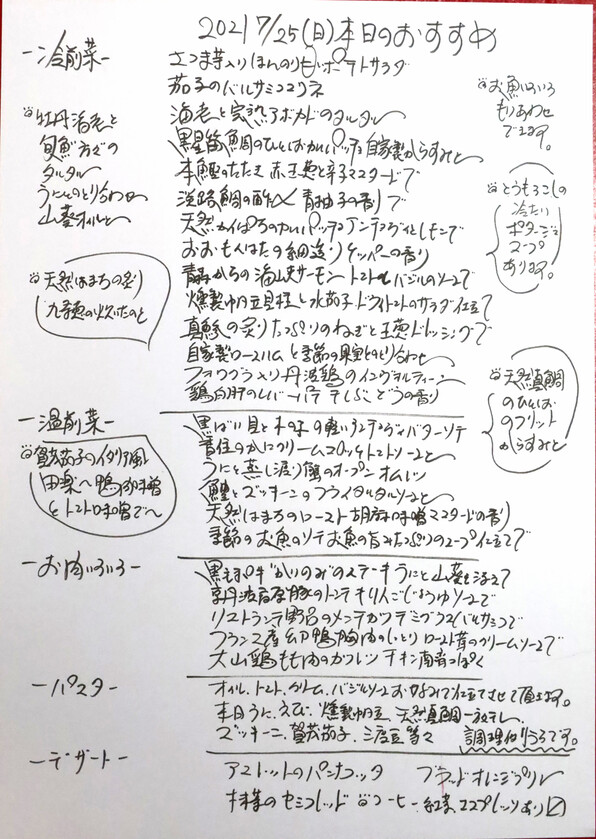 2021 7/25(日)本日のおすすめ
-冷前菜-
さつま芋入りほんのり甘いポテトサラダ
茄子のバルサミコマリネ
海老と完熟アボカドのタルタル
黒星笛鯛のひとしおカルパッチョ自家製からすみと
本鰹のたたき 赤玉葱と辛子マスタードで
淡路鯛の酢〆 青柚子の香りで
天然かんぱちのカルパッチョアンチョヴィとレモンで
おおもんはたの細造りケッパーの香り
青森からの海峡サーモントマトとバジルのソースで
燻製帆立貝柱と水茄子ドライトマトのサラダ仕立て
真鯵の炙りたっぷりのねぎと玉葱ドレッシングで
自家製ロースハムと季節の果実とのとり合わせ
フォワグラ入り丹波鶏のインヴォルティーニ
鶏白肝のレバーパテ ぶどうの香り
牡丹海老と
旬魚方々の
タルタル
うにとのとり合わせ
山葵オイルと
天然はまちの炙り
九条葱の炊いたのと
お魚いろいろ
もりあわせ
できます。
とうもろこしの
冷たい
ポタージュ
スープ
あります。
天然真鯛
のひとしお
のフリット
からすみと
-温前菜-
黒ばい貝と木の子の軽いアンチョヴィバターソテー
香住のかにクリームコロッケトマトソースと
うにと蒸し渡り蟹のオープンオムレツ
鱧とズッキーニのフライタルタルソースと
天然はまちのロースト胡麻味噌マスタードの香り
季節のお魚のソテーお魚の旨みたっぷりのスープ仕立てで
賀茂茄子のイタリア風
田楽〜鴨肉味噌
とトマト味噌で〜
-お肉いろいろ-
黒毛和牛"かいのみ"のステーキうにと山葵を添えて
京丹波高原豚のロトンテキりんごじょうゆソースで
リストランテ野呂のメンチカツデミグラスバルサミコで
フランス産幼鴨胸肉のしっとりロースト茸のクリームソースで
大山鶏もも肉のカツレツチキン南蛮っぽく
-パスタ-
オイル、トマト、クリーム、バジルソースお好みで仕立てさせて頂きます。
本日うに、えび、燻製帆立、天然真鯛一夜干し、
ズッキーニ、賀茂茄子、三度豆等々 調理代りうるです。
-デザート-
アマレットのパンナコッタ ブラッドオレンジプリン
抹茶のセミフレッド コーヒー・紅茶・エスプレッソあり